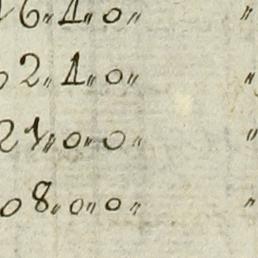 6〃 1〃 0〃 〃
2〃 1〃 0〃 〃
21〃 0〃 0〃 〃
08〃 0〃 0〃 〃